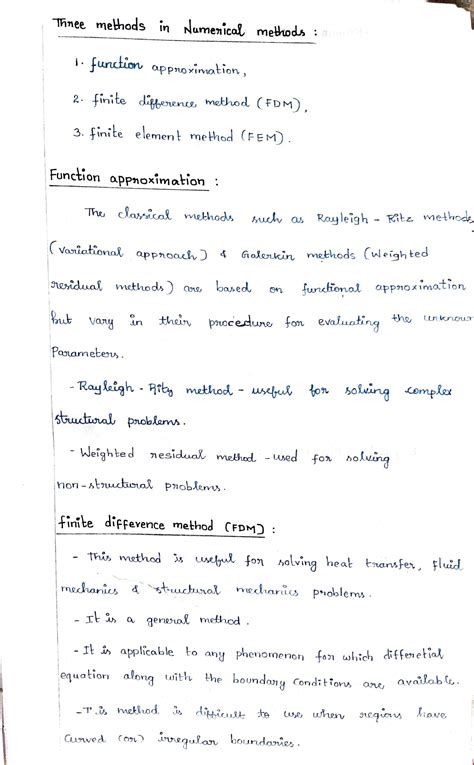 Three methods in Numerical methods :
1. function approximation,
2. finite difference method (FDM),
3. finite element method (FEM).
Function approximation :
The classical methods such as Rayleigh - Ritz methods
(variational approach) & Galerkin methods (Weighted
residual methods) are based on functional approximation
but vary in their procedure for evaluating the unknown
Parameters.
- Rayleigh - Ritz method - useful for solving complex
structural problems.
- Weighted residual method - used for solving
non-structural problems.
finite difference method (FDM) :
- This method is useful for solving heat transfer, fluid
mechanics & structural mechanics problems.
- It is a general method.
- It is applicable to any phenomenon for which differetial
equation along with the boundary conditions are available.
- T.is method is difficult to use when regions have
Curved (or) irregular boundaries.